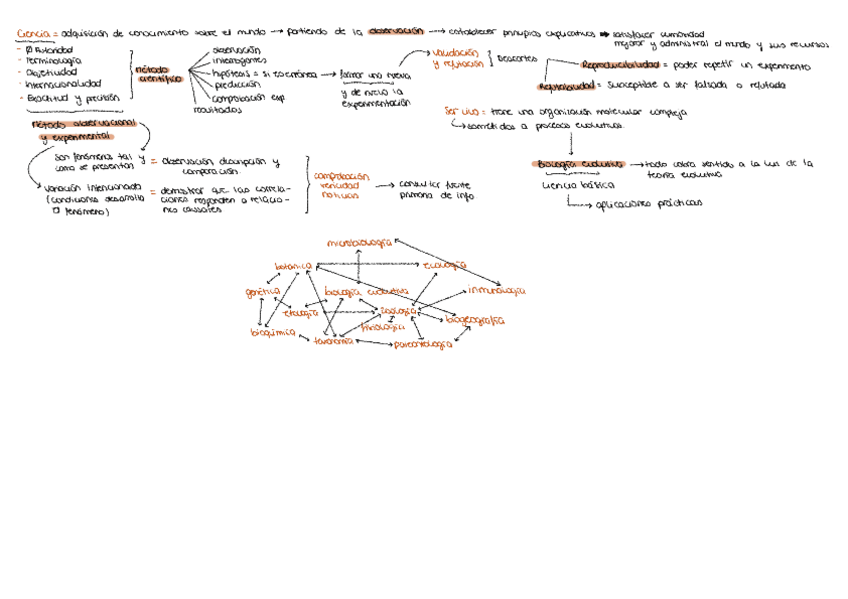 Ciencia = adquisición de conocimiento sobre el mundo → partiendo de la observación → establecer principios explicativos → satisfacer curiosidad
mejorar y administrar el mundo y sus recursos
- Ø Autoridad
- Terminología
- Objetividad
- Internacionalidad
- Exactitud y precisión
método
científico
observación
interrogantes
hipótesis = si es errónea → formar una nueva
y de nuevo la
experimentación
predicción
comprobación exp
resultados
validación
y refutación
Descartes
Reproducibilidad = poder repetir un experimento
Refutabilidad = susceptible a ser falsada o refutada
Método observacional
y experimental
son fenómenos tal y
como se presentan
= observación descripción y
comparación.
variación intencionada
(condiciones desarrollo
fenómeno)
= demostrar que las correla-
ciones responden a relacio-
nes causales
comprobación
veracidad
noticias
→ consultar fuente
primaria de info.
Ser vivo = tiene una organización molecular compleja
→ sometidos a procesos evolutivos.
Biología evolutiva → todo cobra sentido a la luz de la
teoría evolutiva
ciencia básica
→ aplicaciones prácticas
microbiología
botánica
ecología
genética
biología evolutiva
inmunología
etología
zoología
biogeografía
fisiología
bioquímica
taxonomía
paleontología